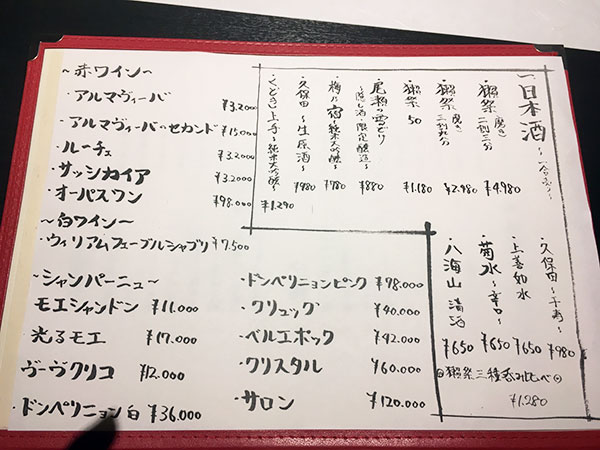 〜赤ワイン〜
・アルマヴィーバ ¥32.000
・アルマヴィーバのセカンド ¥15.000
・ルーチェ ¥32.000
・サッシカイア ¥32.000
・オーパスワン ¥98.000
〜白ワイン〜
・ウィリアムフェーブルシャブリ ¥7.500
〜シャンパーニュ〜
モエシャンドン ¥11.000
・光るモエ ¥17.000
ヴーヴクリコ ¥12.000
・ドンペリニョン白 ¥36.000
・ドンペリニョンピンク ¥98.000
・クリュッグ ¥40.000
・ベルエポック ¥42.000
・クリスタル ¥60.000
・サロン ¥120.000
日本酒 〜一合から〜
・獺祭 磨き二割三分 ¥4.980
・獺祭 磨き三割九分 ¥2.980
・獺祭 50 ¥1.180
・尾瀬の雪どけ ¥880
・梅乃宿〜純米大吟醸〜 ¥980
・久保田〜生原酒〜 ¥980
・くどき上手〜純米大吟醸〜 ¥1.290
・久保田〜千寿〜 ¥980
・上善如水 ¥650
・菊水〜辛口〜 ¥650
・八海山 清酒 ¥650
獺祭三種呑み比べ
¥1.280